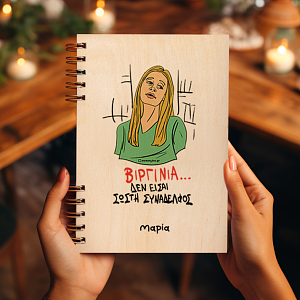 ΒΙΡΓΙΝΙΑ...
ΔΕΝ ΕΙΣΑΙ
ΣΩΣΤΗ ΣΥΝΑΔΕΛΦΟΣ
Μαρία